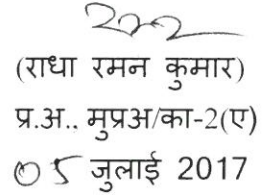 (राधा रमन कुमार)
प्र.अ., मुप्रअ/का-2(ए)
05 जुलाई 2017